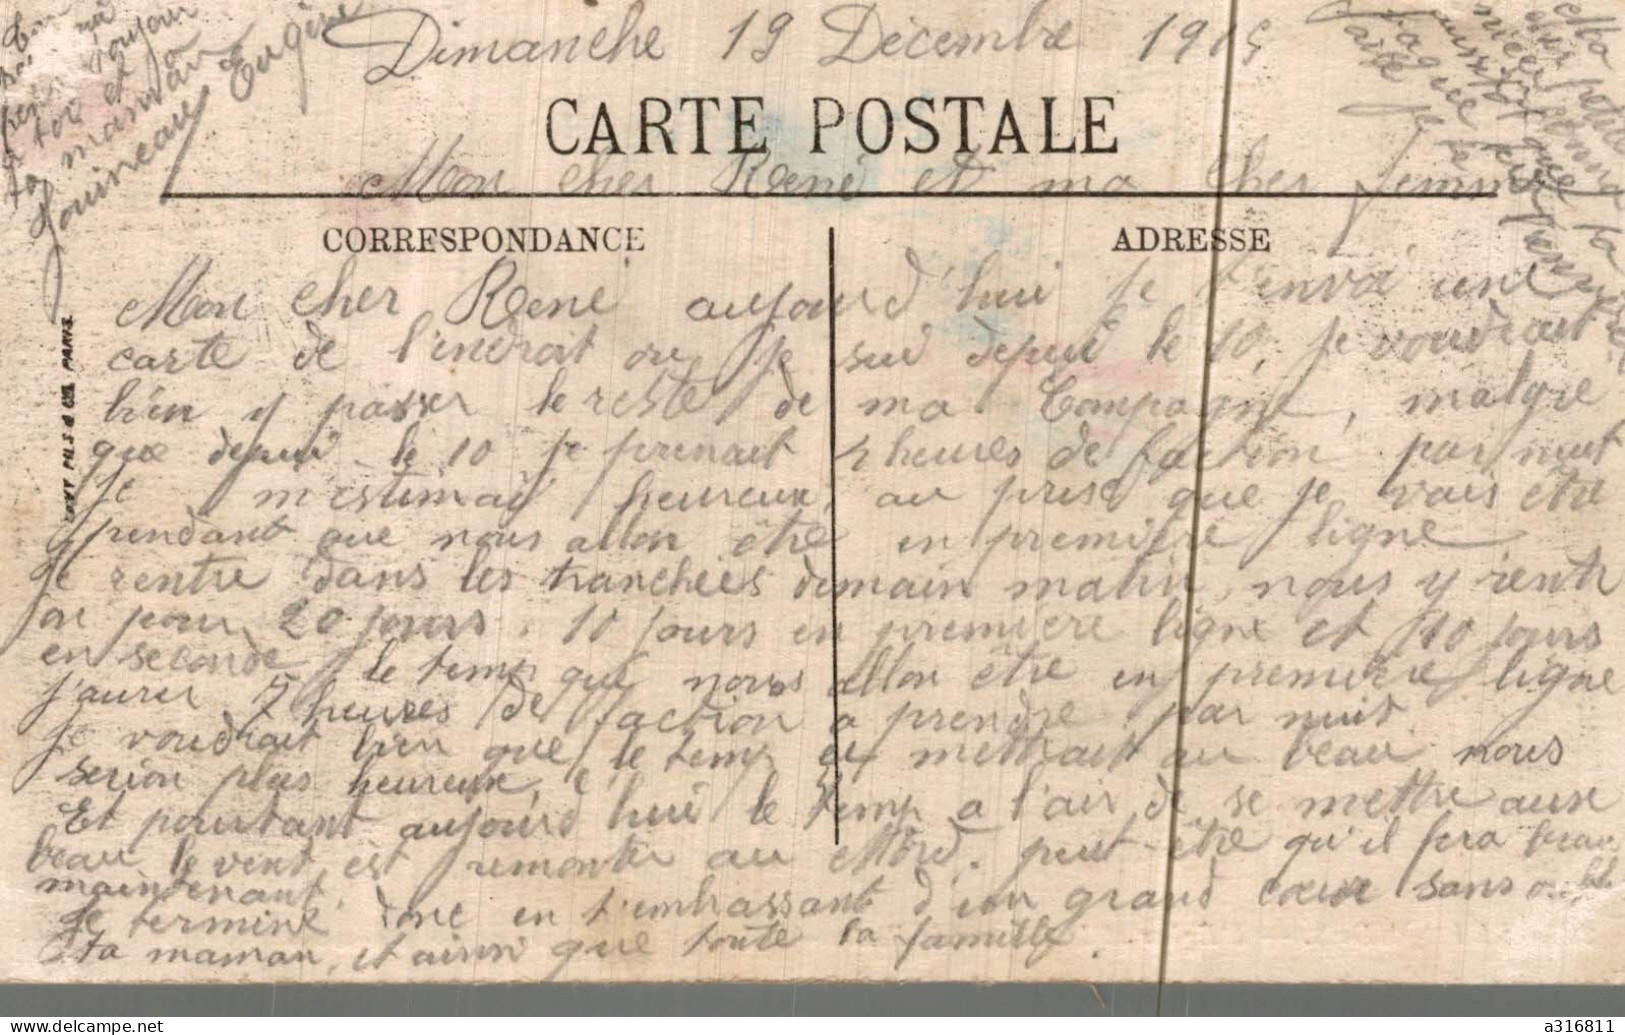 Dimanche 19 Décembre 1915
CARTE POSTALE
Mon cher René et ma cher femme
CORRESPONDANCE
ADRESSE
Mon cher René aujourd'hui je t'envoi une
carte de l'endroit ou je sui depui le 10, je voudrait
bien y passer le reste de ma Compagne, malgre
que depui le 10 je prenait 4 heures de faction par nuit
Je m'estimait heureux, au prise que je vais être
pendant que nous allon être en première ligne
Je rentre dans les tranchées demain matin, nous y rentr
on pour 20 jours, 10 jours en première ligne et 10 jours
en seconde, le temp que nous allon être en première ligne
j'aurer 7 heures de faction a prendre par nuit.
je voudrait bien que le temp ce mettrait au beau nous
serion plus heureux,
Et pourtant aujourd'hui le temp a l'air de se mettre aux
beau le vent est remonter au Nord. peut-être qu'il fera beau
maintenant.
Je termine donc en t'embrassant d'un grand cœur sans
ta maman, et ainsi que toute la famille.
toujour
a toi et
ta maman
Eugène
LEVY FILS & CIE PARIS
a316811